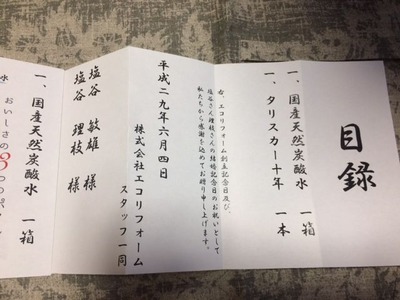 目録
一、国産天然炭酸水 一箱
一、タリスカー十年 一本
右、エコリフォーム創立記念日及び、
塩谷さん理枝さんの結婚記念日のお祝いとして
私たちから感謝を込めてお贈り申し上げます。
平成二九年六月四日
株式会社エコリフォーム
スタッフ一同
塩谷 敏雄 様
塩谷 理枝 様
一、国産天然炭酸水 一箱
水 おいしさの3つの